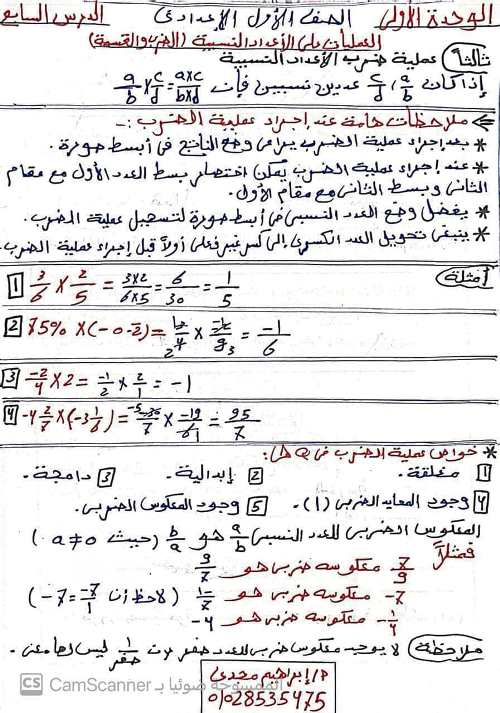 الوحدة الأولى الصف الأول الإعدادى الدرس السابع
العمليات على الأعداد النسبية (الضرب والقسمة)
ثالثًا عملية ضرب الأعداد النسبية
إذا كان a/b ، c/d عددين نسبيين فإن a/b × c/d = a×c/b×d
ملاحظات هامة عند إجراء عملية الضرب :-
* بعد إجراء عملية الضرب يراعى وضع الناتج فى أبسط صورة .
* عند إجراء عملية الضرب يمكن اختصار بسط العدد الأول مع مقام
الثانى وبسط الثانى مع مقام الأول .
* يفضل وضع العدد النسبى فى أبسط صورة لتسهيل عملية الضرب .
* ينبغى تحويل العدد الكسرى إلى كسر غير فعلى أولًا قبل إجراء عملية الضرب .
أمثلة
1 3/6 × 2/5 = 3×2/6×5 = 6/30 = 1/5
2 75% × (-0.2) = = -1/6
3 -2/4 × 2 = -1/2 × 2/1 = -1
4 -4 2/7 × (-3 1/6) = -5 -30/7 × -19/6 1 = 95/7
* خواص عملية الضرب فى Q :
1 مغلقة . 2 إبدالية . 3 دامجة .
4 وجود المحايد الضربى (1) . 5 وجود المعكوس الضربى .
المعكوس الضربى للعدد النسبى a/b هو b/a (حيث a ≠ 0)
فمثلًا 7/9 معكوسه ضربى هو 9/7
-7 معكوسه ضربى هو (لاحظ أن -7 = -7/1)
-1/4 معكوسه ضربى هو -4
ملاحظة لا يوجد معكوس ضربى للعدد صفر لأن 1/صفر ليس لها معنى .
م/إبراهيم مجدى
01028535475
CS CamScanner الممسوحة ضوئيا بـ